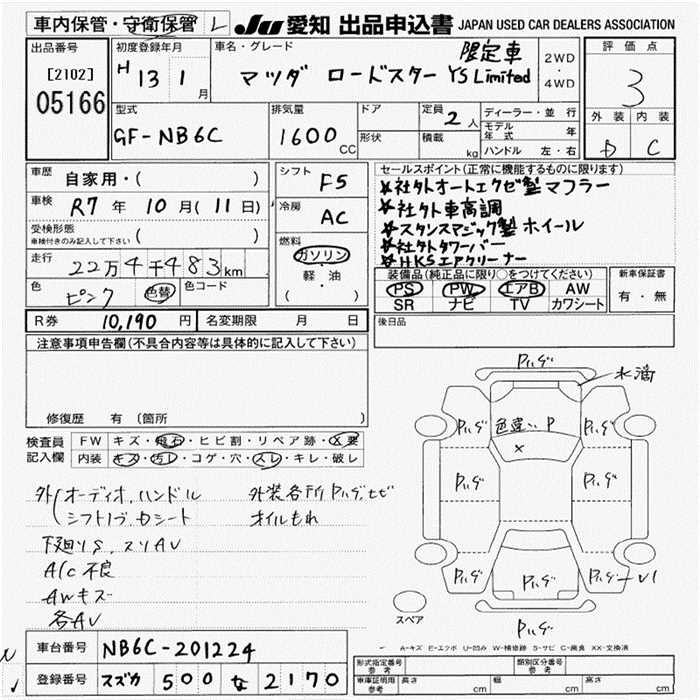 車内保管・守衛保管 L JU 愛知 出品申込書 JAPAN USED CAR DEALERS ASSOCIATION
出品番号 初度登録年月 車名・グレード 限定車 2WD・4WD 評価点
[2102] H 13 1月 マツダ ロードスター YS Limited 3
05166 外装 内装
型式 排気量 ドア 定員 2人 ディーラー・並行 D C
GF-NB6C 1600CC 形状 積載 kg モデル年式 年
ハンドル 左・右
車歴 自家用・( ) シフト F5 セールスポイント(正常に機能するものに限ります)
車検 R7年10月(11日) 冷房 AC
社外オートエクゼ製マフラー
社外車高調
スタンスマジック製ホイール
社外タワーバー
HKSエアクリーナー
受検形態 ( )
車検付きのみ記入して下さい
燃料 ガソリン
軽・油
( )
走行 22万4千483km
色 ピンク 色替 色コード
装備品(純正品に限り○をつけてください) 新車保証書
PS PW エアB AW 有・無
SR ナビ TV カワシート
R券 10,190円 名変期限 月 日 後日品
注意事項申告欄(不具合内容等は具体的に記入して下さい)
修復歴 有 (箇所 )
検査員 FW キズ・飛石・ヒビ割・リペア跡・X要
記入欄 内装 キズ・汚レ・コゲ・穴・スレ・キレ・破レ
外 オーディオ、ハンドル 外装各所Pハゲ、ヒビ
シフトノブ、Dシート オイルもれ
下廻りS、スリAV
A/C不良
AWキズ
各AV
Pハゲ
水滴
Pハゲ 色違い P Pハゲ
×
Pハゲ Pハゲ
Pハゲ Pハゲ Pハゲ U1
スペア Pハゲ
A-キズ E-エクボ U-凹み W-補修跡 S-サビ C-腐食 XX-交換済
車台番号 NB6C-201224
登録番号 スズカ 500 な 2170
型式指定番号 参考 類別区分番号 参考
車庫証明用 参考 長さ cm 幅 cm 高さ cm